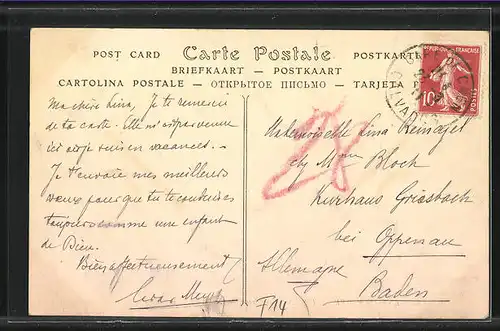 POST CARD Carte Postale POSTKARTE
BRIEFKAART — POSTKAART
CARTOLINA POSTALE — ОТКРЫТОЕ ПИСЬМО — TARJETA
Ma chère Lina, Je te remercie
de ta carte. Elle m'est parvenue
ici où je suis en vacances.
Je t'envoie mes meilleurs
vœux pour que tu te conduises
toujours comme une enfant
de Dieu.
Bien affectueusement
REPUBLIQUE FRANÇAISE
10
POSTES
CALVADOS
28
Mademoiselle Lina
chez Mme Bloch
Kurhaus Griesbach
bei Oppenau
Allemagne Baden
F14